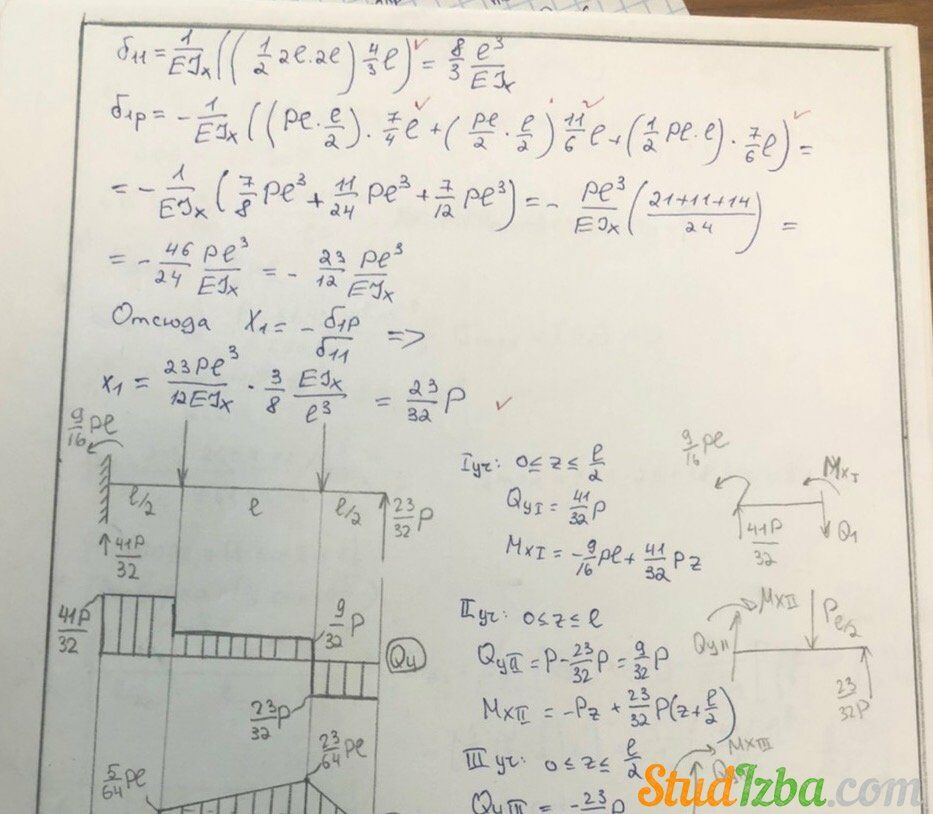 δ11 = 1/EJx ((1/2 2l·2l) 4/3 l) = 8/3 l³/EJx
δ1p = - 1/EJx ((Pl·l/2)·7/4 l + (Pl/2·l/2) 11/6 l + (1/2 Pl·l)·7/6 l) =
= - 1/EJx (7/8 Pl³ + 11/24 Pl³ + 7/12 Pl³) = - Pl³/EJx ((21+11+14)/24) =
= - 46/24 Pl³/EJx = - 23/12 Pl³/EJx
Отсюда X1 = - δ1p/δ11 =>
x1 = 23Pl³/12EJx · 3/8 EJx/l³ = 23/32 P
9/16 Pl
l/2 l l/2
23/32 P
41P/32
I уч: 0 ≤ z ≤ l/2
QyI = 41/32 P
MxI = -9/16 Pl + 41/32 Pz
9/16 Pl
MxI
41P/32
Q1
41P/32
9/32 P
Qy
23/32 P
II уч: 0 ≤ z ≤ l
QyII = P - 23/32 P = 9/32 P
MxII = -Pz + 23/32 P(z + l/2)
MxII
QyII
P l/2
23/32 P
5/64 Pl
23/64 Pl
III уч: 0 ≤ z ≤ l/2
QyIII = -23 P
MxIII
StudIzba.com